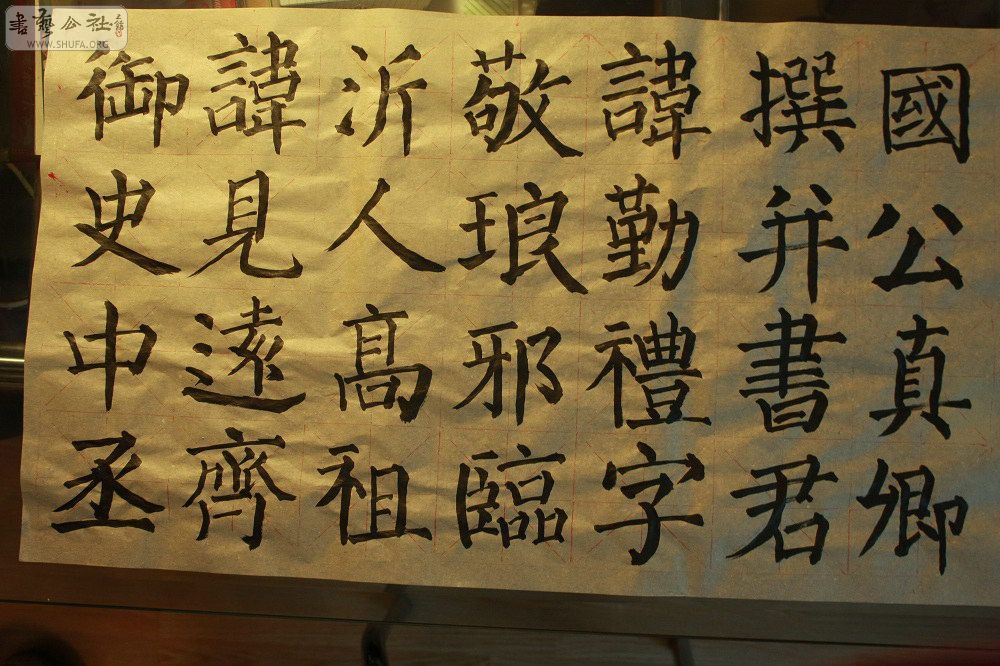 國公真卿
撰并書君
諱勤禮字
敬琅邪臨
沂人高祖
諱見遠齊
御史中丞
書藝公社
WWW.SHUFA.ORG